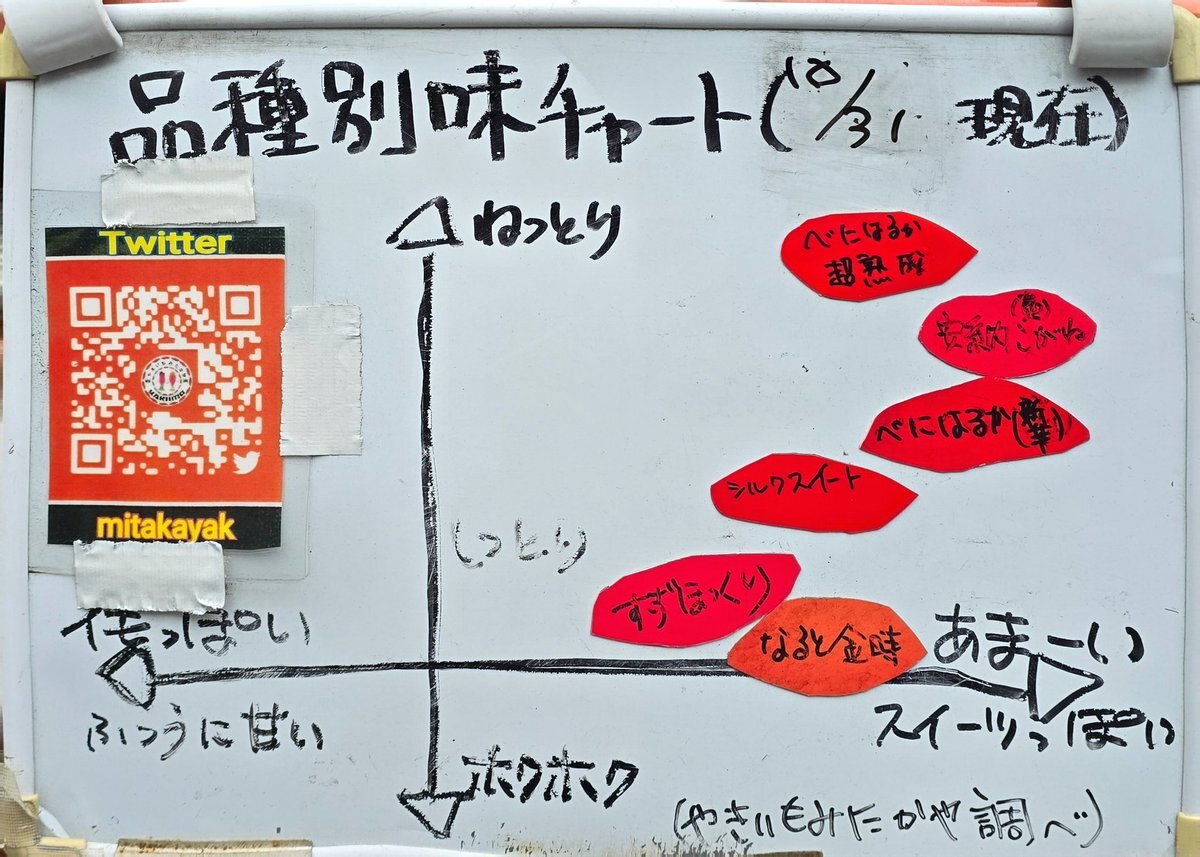 品種別味チャート(10/31 現在)
Twitter
mitakayak
ねっとり
べにはるか
超熟成
安納こがね
べにはるか
シルクスイート
しっとり
すずほっくり
なると金時
っぽい
あまーい
ふつうに甘い
スイーツっぽい
ホクホク
(やきいもみたかや調べ)